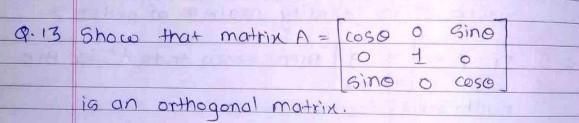 Q.13 Show that matrix A = [cosθ 0 sinθ
0 1 0
sinθ 0 cosθ]
is an orthogonal matrix.